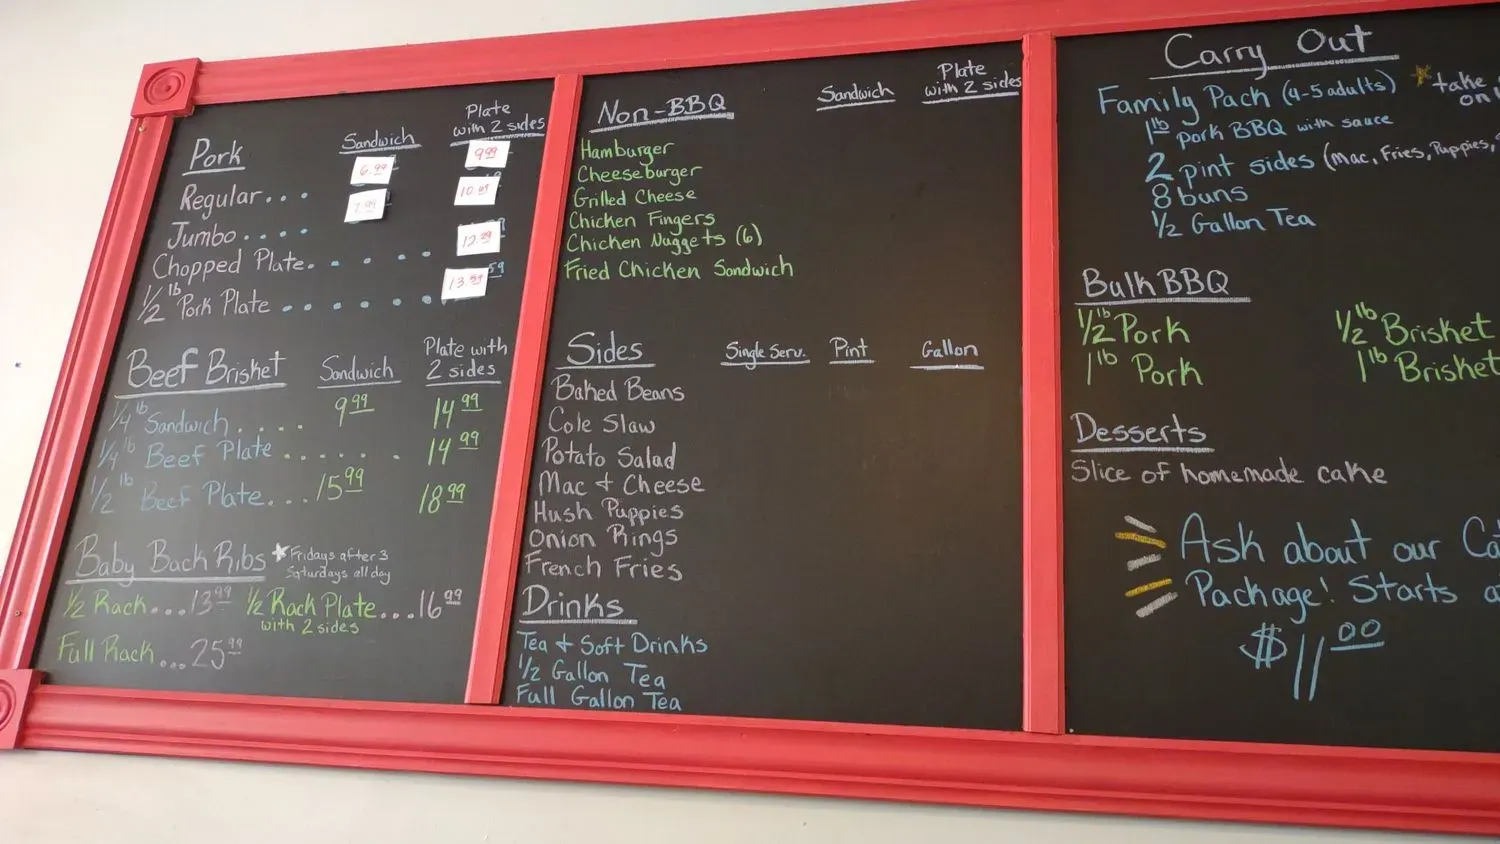 Pork Sandwich Plate with 2 sides
Regular... 6.99 9.99
Jumbo.... 7.99
Chopped Plate. . . . . 12.99
1/2 lb Pork Plate ...... 13.59
Beef Brisket Sandwich Plate with 2 sides
1/4 lb Sandwich.... 9.99 14.99
1/4 lb Beef Plate...... 14.99
1/2 lb Beef Plate...15.99 18.99
Baby Back Ribs ★ Fridays after 3
Saturdays all day
1/2 Rack...13.99 1/2 Rack Plate...16.99
with 2 sides
Full Rack...25.99
Non-BBQ Sandwich Plate with 2 sides
Hamburger
Cheeseburger
Grilled Cheese
Chicken Fingers
Chicken Nuggets (6)
Fried Chicken Sandwich
Sides Single Serv. Pint Gallon
Baked Beans
Cole Slaw
Potato Salad
Mac + Cheese
Hush Puppies
Onion Rings
French Fries
Drinks
Tea + Soft Drinks
1/2 Gallon Tea
Full Gallon Tea
Carry Out
Family Pack (4-5 adults) ★ take
on
1 lb pork BBQ with sauce
2 pint sides (Mac, Fries, Puppies,
8 buns
1/2 Gallon Tea
Bulk BBQ
1/2 lb Pork 1/2 lb Brisket
1 lb Pork 1 lb Brisket
Desserts
Slice of homemade cake
Ask about our
Package! Starts
$11.00